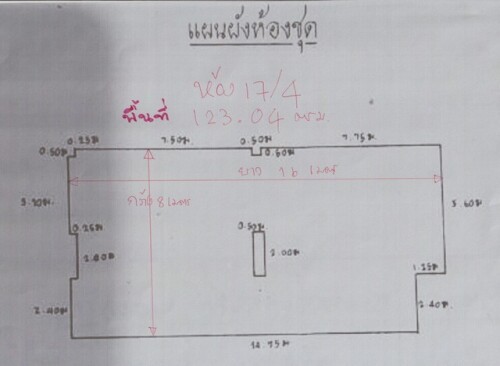 แผนผังห้องชุด
ห้อง 17/4
พื้นที่ 123.04 ตรม
0.25ม 7.50ม 0.50ม 7.75ม
0.50ม 0.50ม
ยาว 16 เมตร
กว้าง 8 เมตร
5.60ม
0.25ม 0.50ม
2.00ม
1.25ม
2.40ม 2.40ม
14.75ม